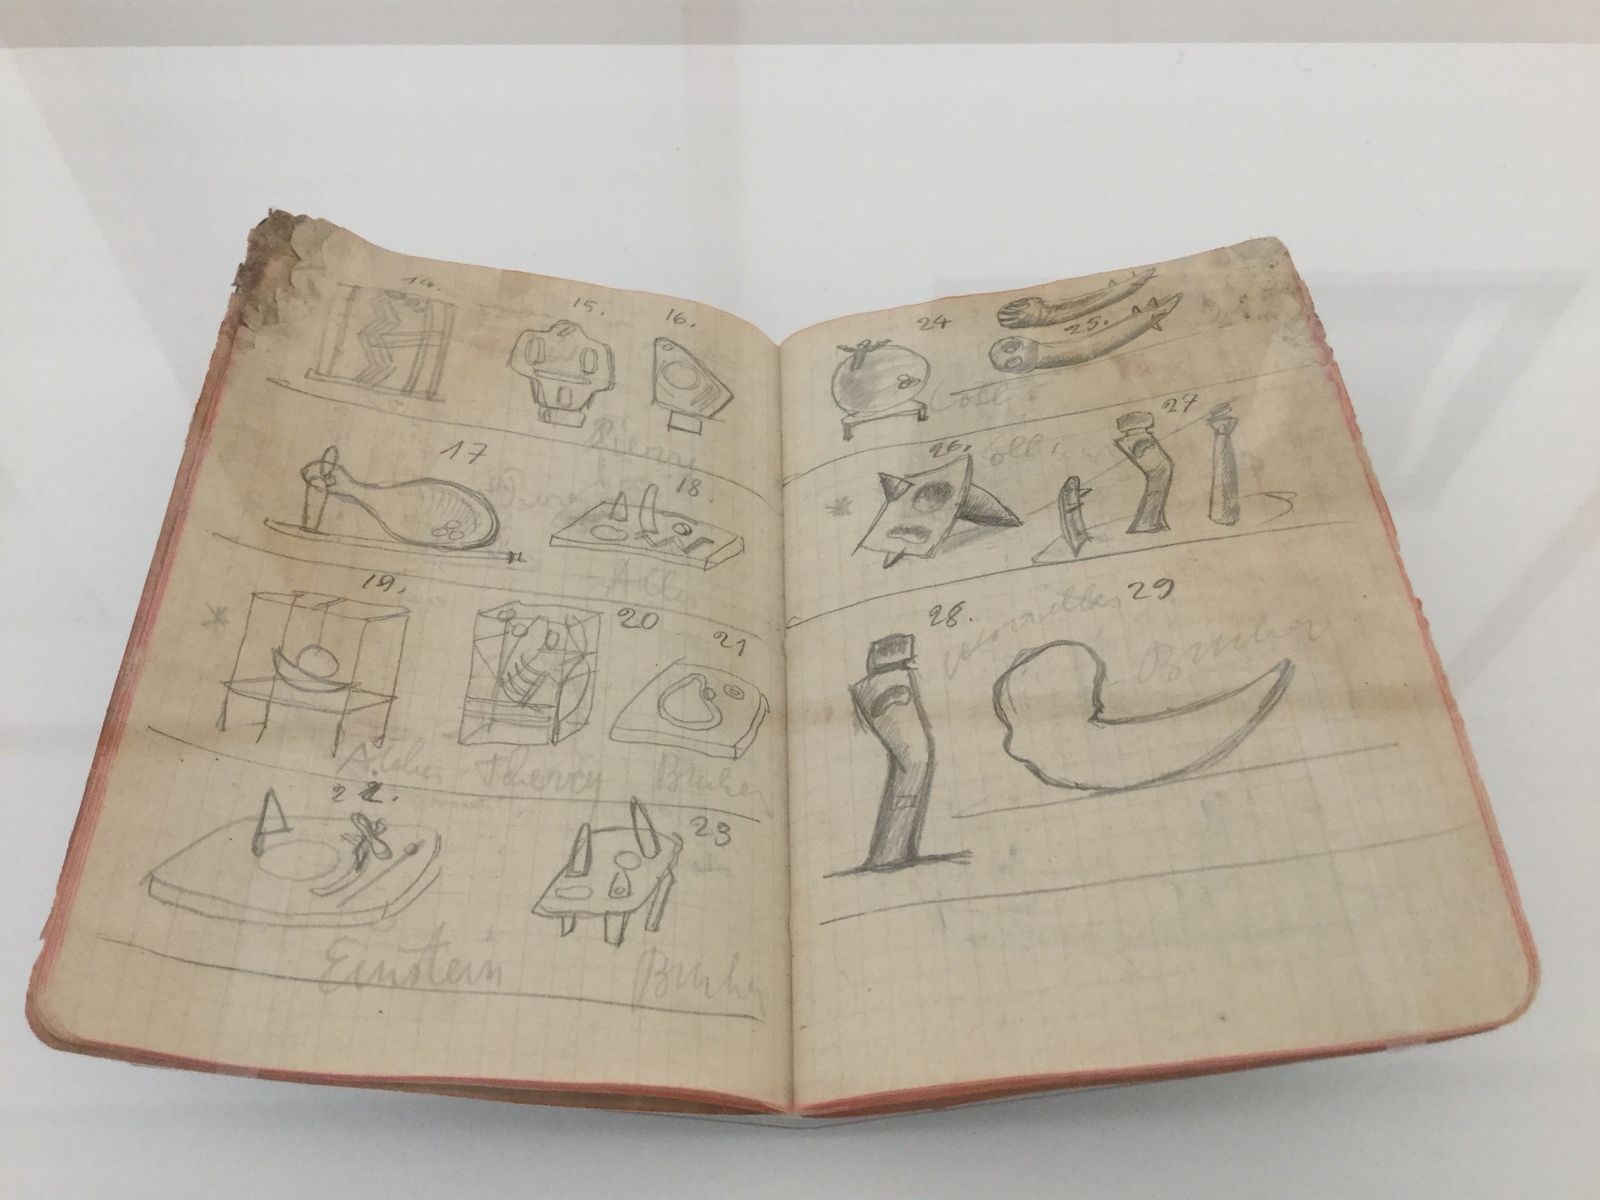 14.
15.
16.
Pierre
17
18.
19.
20
21
Bucher
22.
23
Einstein
Bucher
24
25.
Coll.
26.
Coll.
27
28.
Noailles
29
Bucher